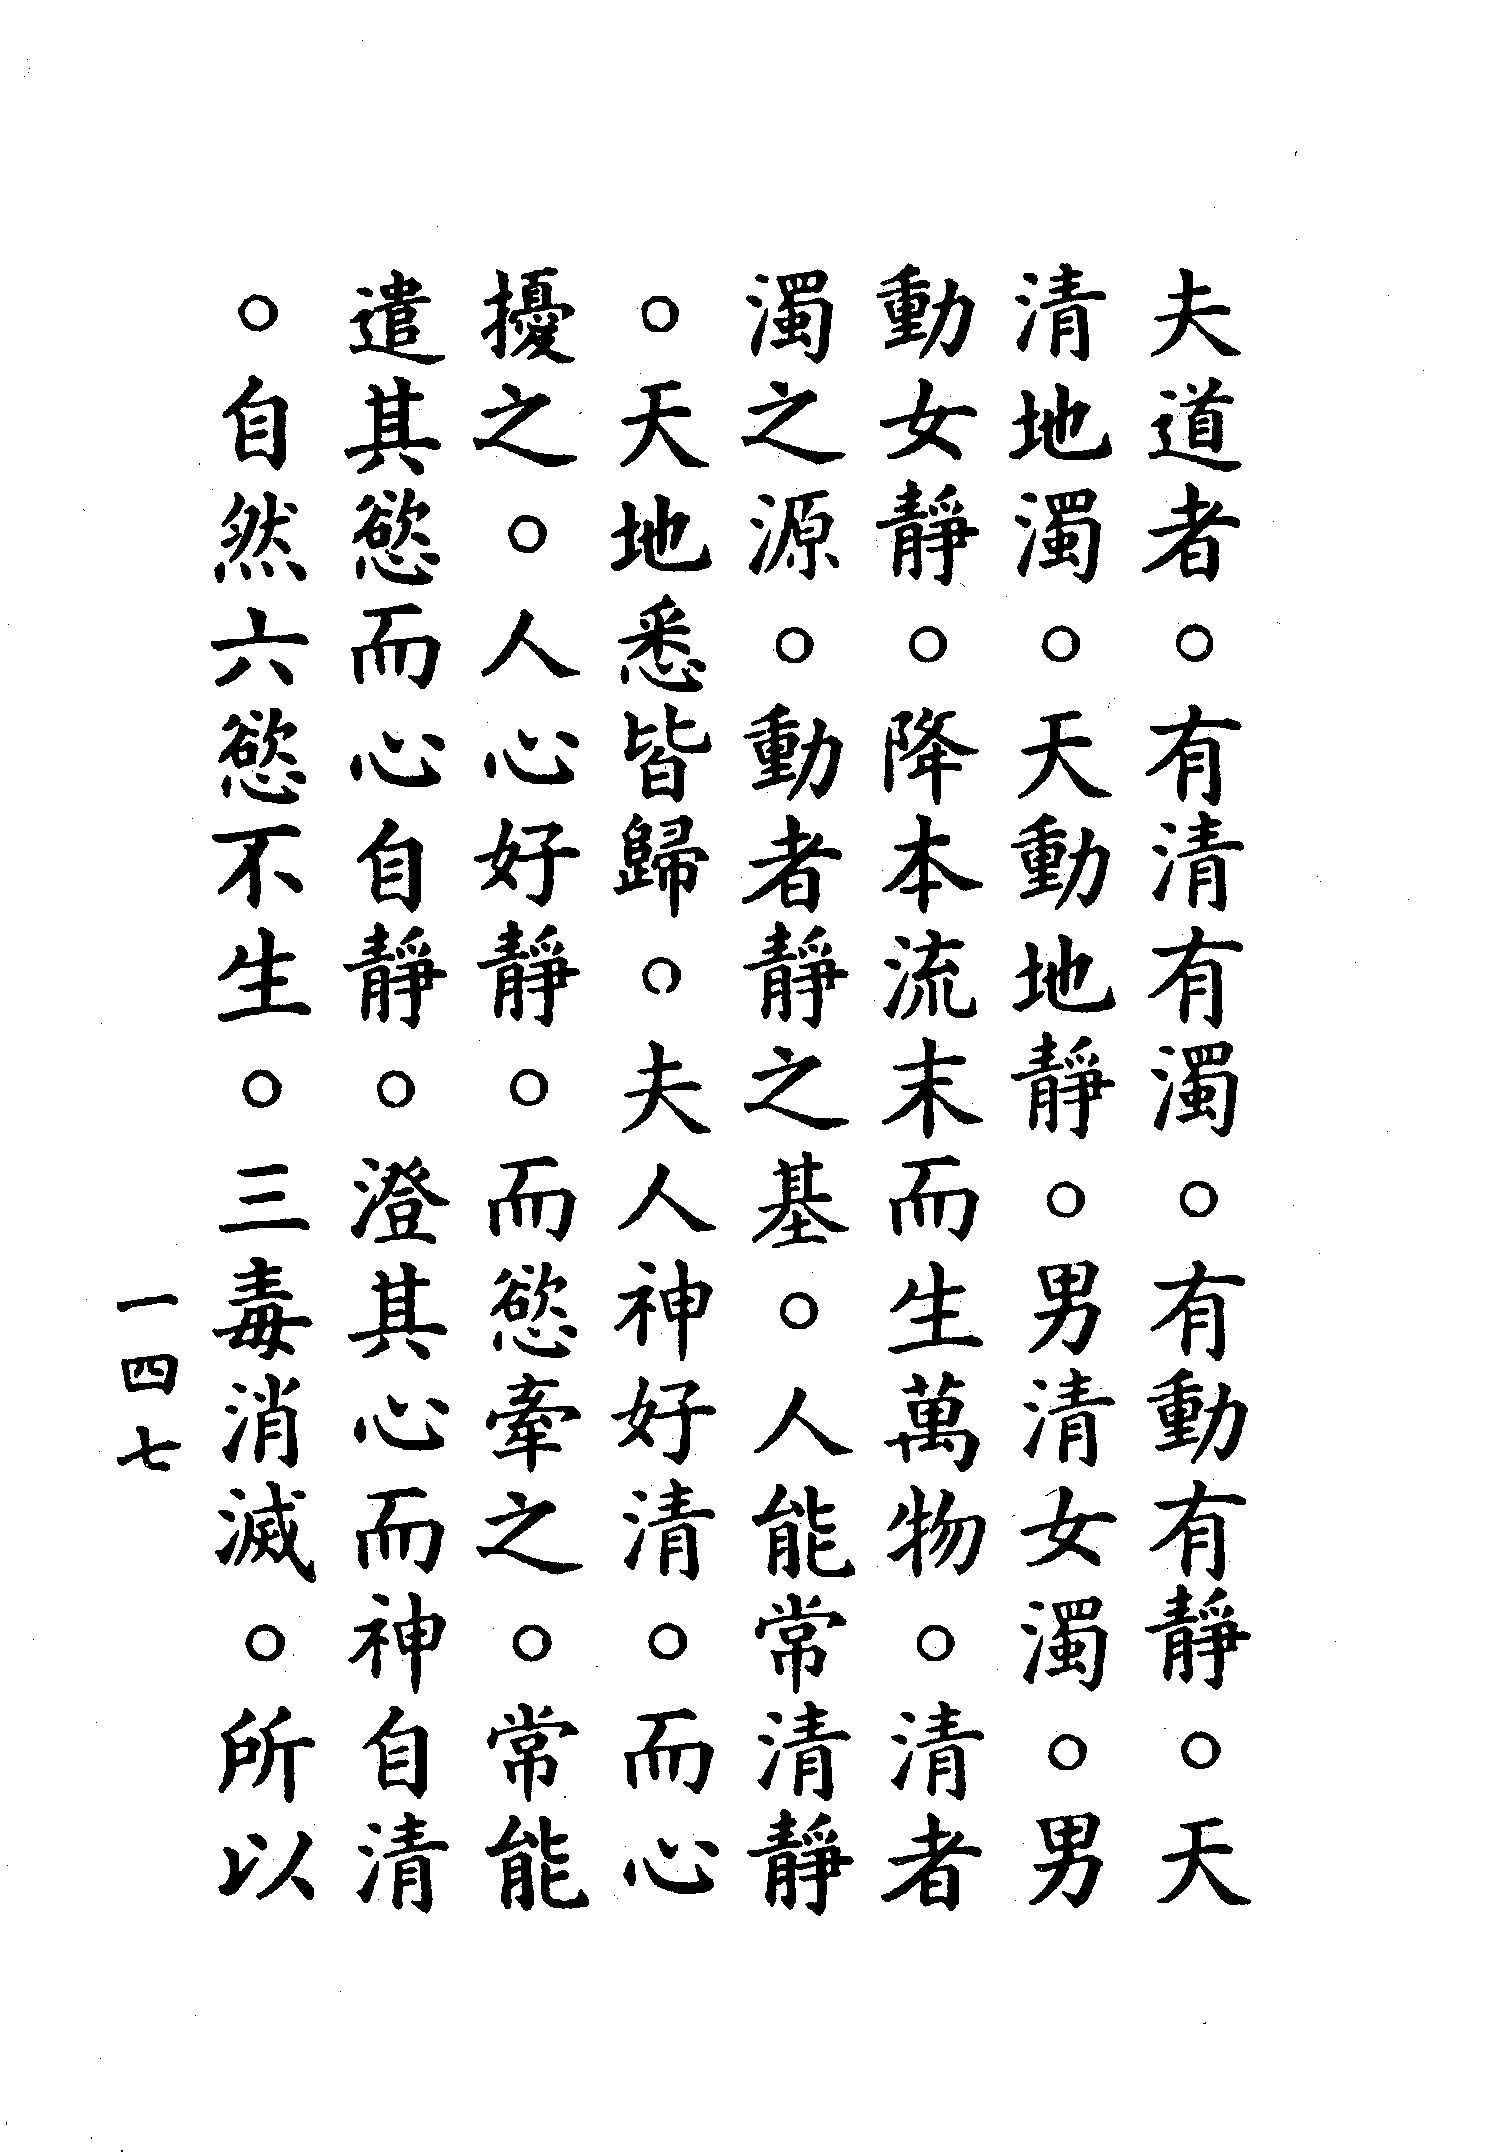 夫道者。有清有濁。有動有靜。天
清地濁。天動地靜。男清女濁。男
動女靜。降本流末而生萬物。清者
濁之源。動者靜之基。人能常清靜
。天地悉皆歸。夫人神好清。而心
擾之。人心好靜。而慾牽之。常能
遣其慾而心自靜。澄其心而神自清
。自然六慾不生。三毒消滅。所以
一四七